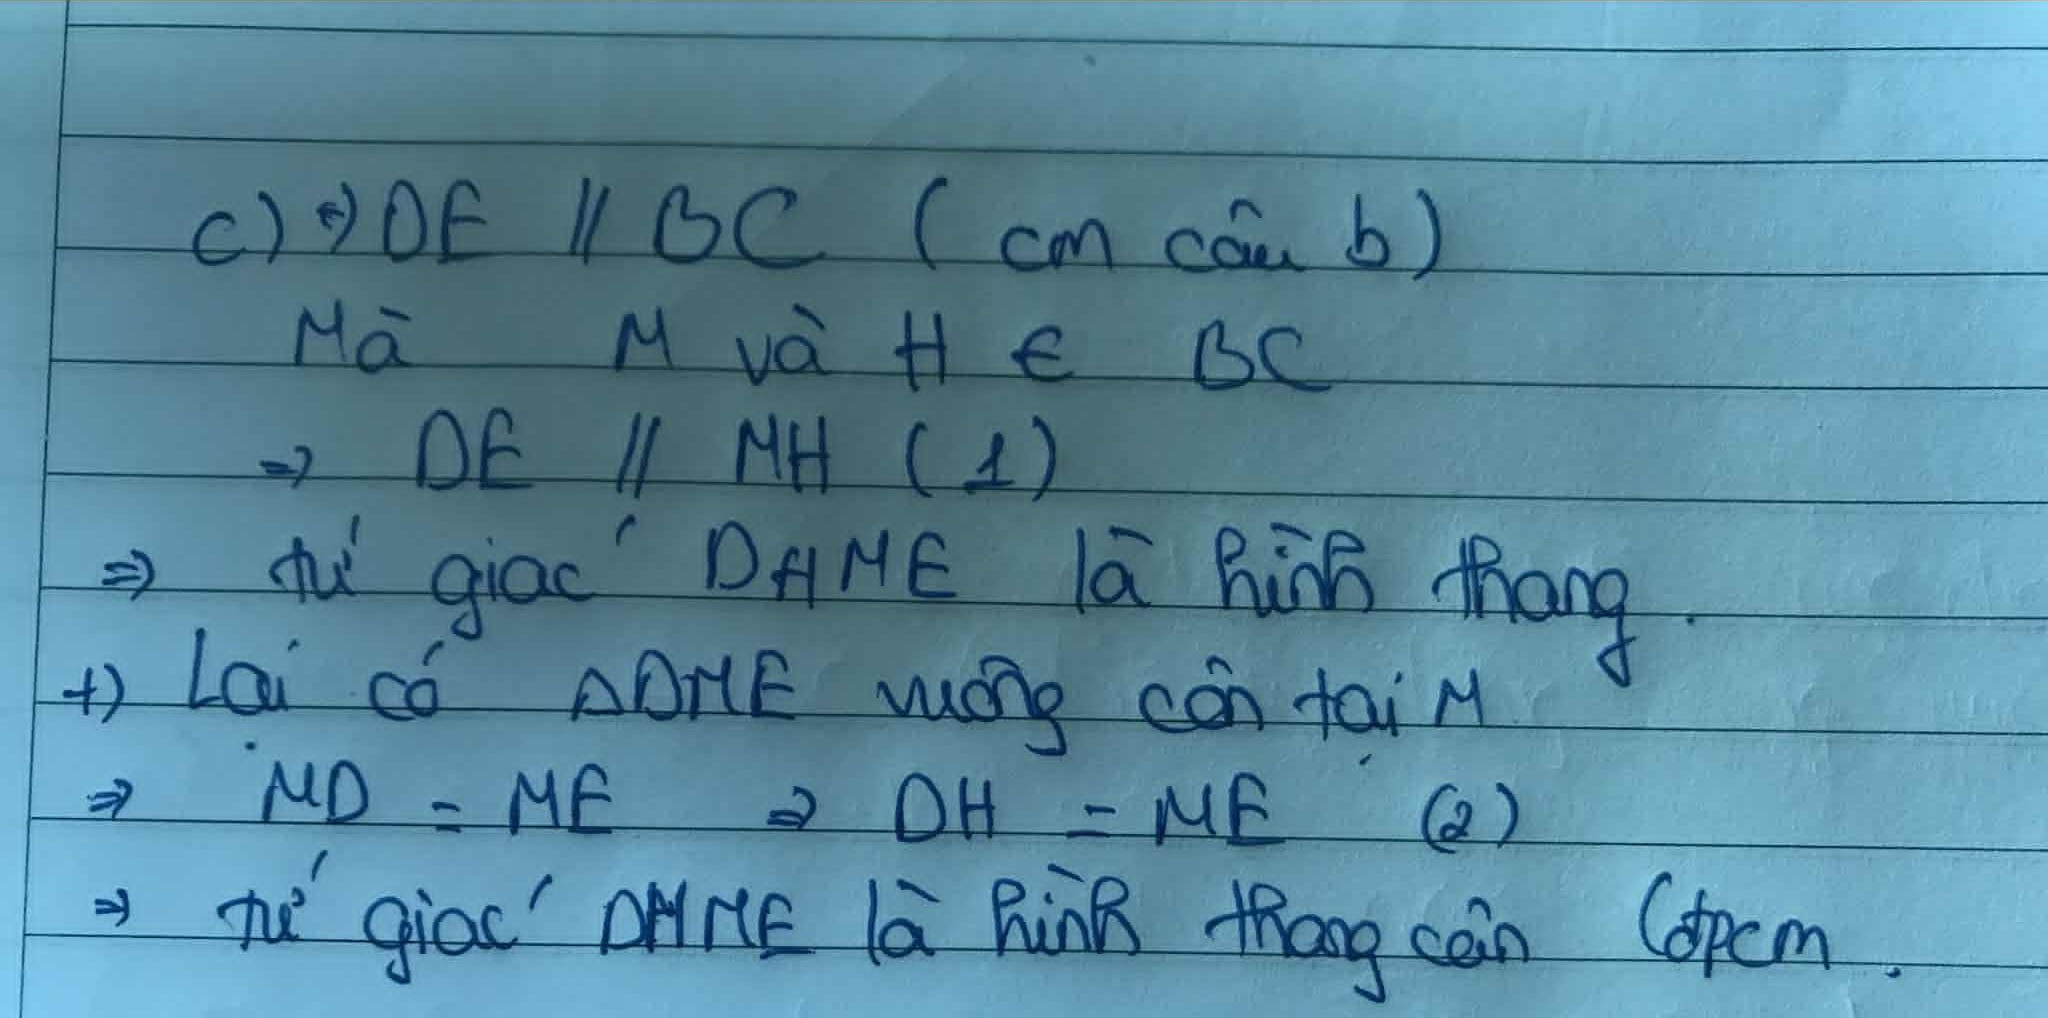 c) +) DE // BC ( cm câu b )
Mà M và H ∈ BC
=> DE // MH (1)
=> tứ giác DHME là hình thang.
+) Lại có ΔDME vuông cân tại M
=> MD = ME => DH = ME (2)
=> tứ giác DHME là hình thang cân (đpcm.